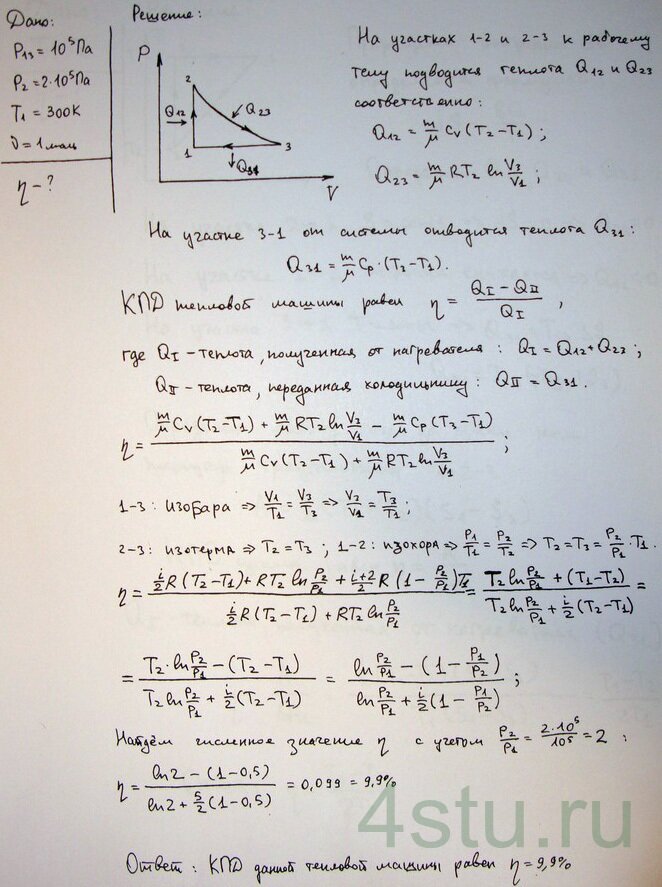 Дано:
P₁₃ = 10⁵ Па
P₂ = 2·10⁵ Па
T₁ = 300K
ν = 1 моль
η - ?
Решение:
P
2
Q₁₂
Q₂₃
1
3
Q₃₁
V
На участках 1-2 и 2-3 к рабочему
телу подводится теплота Q₁₂ и Q₂₃
соответственно:
Q₁₂ = m/μ Cv (T₂-T₁) ;
Q₂₃ = m/μ RT₂ ln V₃/V₁ ;
На участке 3-1 от системы отводится теплота Q₃₁ :
Q₃₁ = m/μ Cp · (T₃-T₁).
КПД тепловой машины равен η = (Q_I - Q_II)/Q_I ,
где Q_I - теплота, полученная от нагревателя : Q_I = Q₁₂ + Q₂₃ ;
Q_II - теплота, переданная холодильнику : Q_II = Q₃₁ .
η = (m/μ Cv (T₂-T₁) + m/μ RT₂ ln V₃/V₁ - m/μ Cp (T₃-T₁)) / (m/μ Cv (T₂-T₁) + m/μ RT₂ ln V₃/V₁) ;
1-3 : изобара => V₁/T₁ = V₃/T₃ => V₃/V₁ = T₃/T₁ ;
2-3 : изотерма => T₂ = T₃ ; 1-2 : изохора => P₁/T₁ = P₂/T₂ => T₂ = T₃ = P₂/P₁ · T₁ .
η = (i/2 R (T₂-T₁) + RT₂ ln P₂/P₁ + (i+2)/2 R (1 - P₂/P₁) T₁) / (i/2 R (T₂-T₁) + RT₂ ln P₂/P₁) = (T₂ ln P₂/P₁ + (T₁-T₂)) / (T₂ ln P₂/P₁ + i/2 (T₂-T₁)) =
= (T₂ · ln P₂/P₁ - (T₂-T₁)) / (T₂ ln P₂/P₁ + i/2 (T₂-T₁)) = (ln P₂/P₁ - (1 - P₁/P₂)) / (ln P₂/P₁ + i/2 (1 - P₁/P₂)) ;
Найдём численное значение η с учетом P₂/P₁ = 2·10⁵/10⁵ = 2 :
η = (ln2 - (1-0,5)) / (ln2 + 5/2 (1-0,5)) = 0,099 = 9,9%
4stu.ru
Ответ : КПД данной тепловой машины равен η = 9,9%